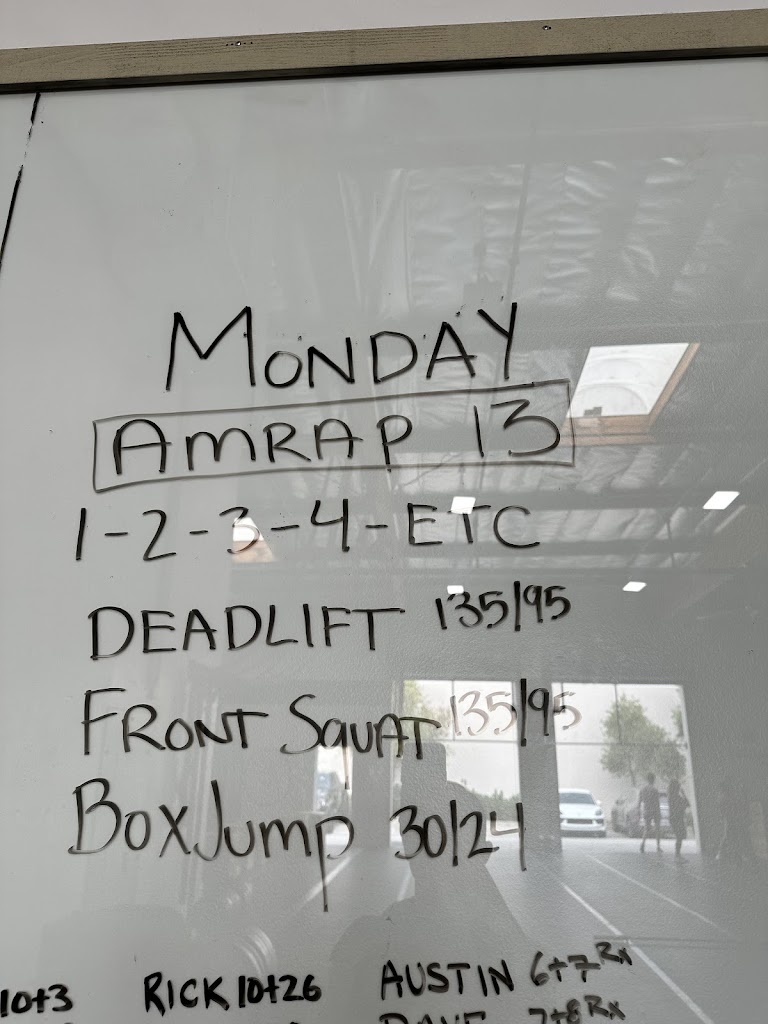 MONDAY
AMRAP 13
1-2-3-4-ETC
DEADLIFT 135/95
FRONT SQUAT 135/95
BOX JUMP 30/24
10+3 RICK 10+26 AUSTIN 6+7 Rx
DAVE 7+8 Rx